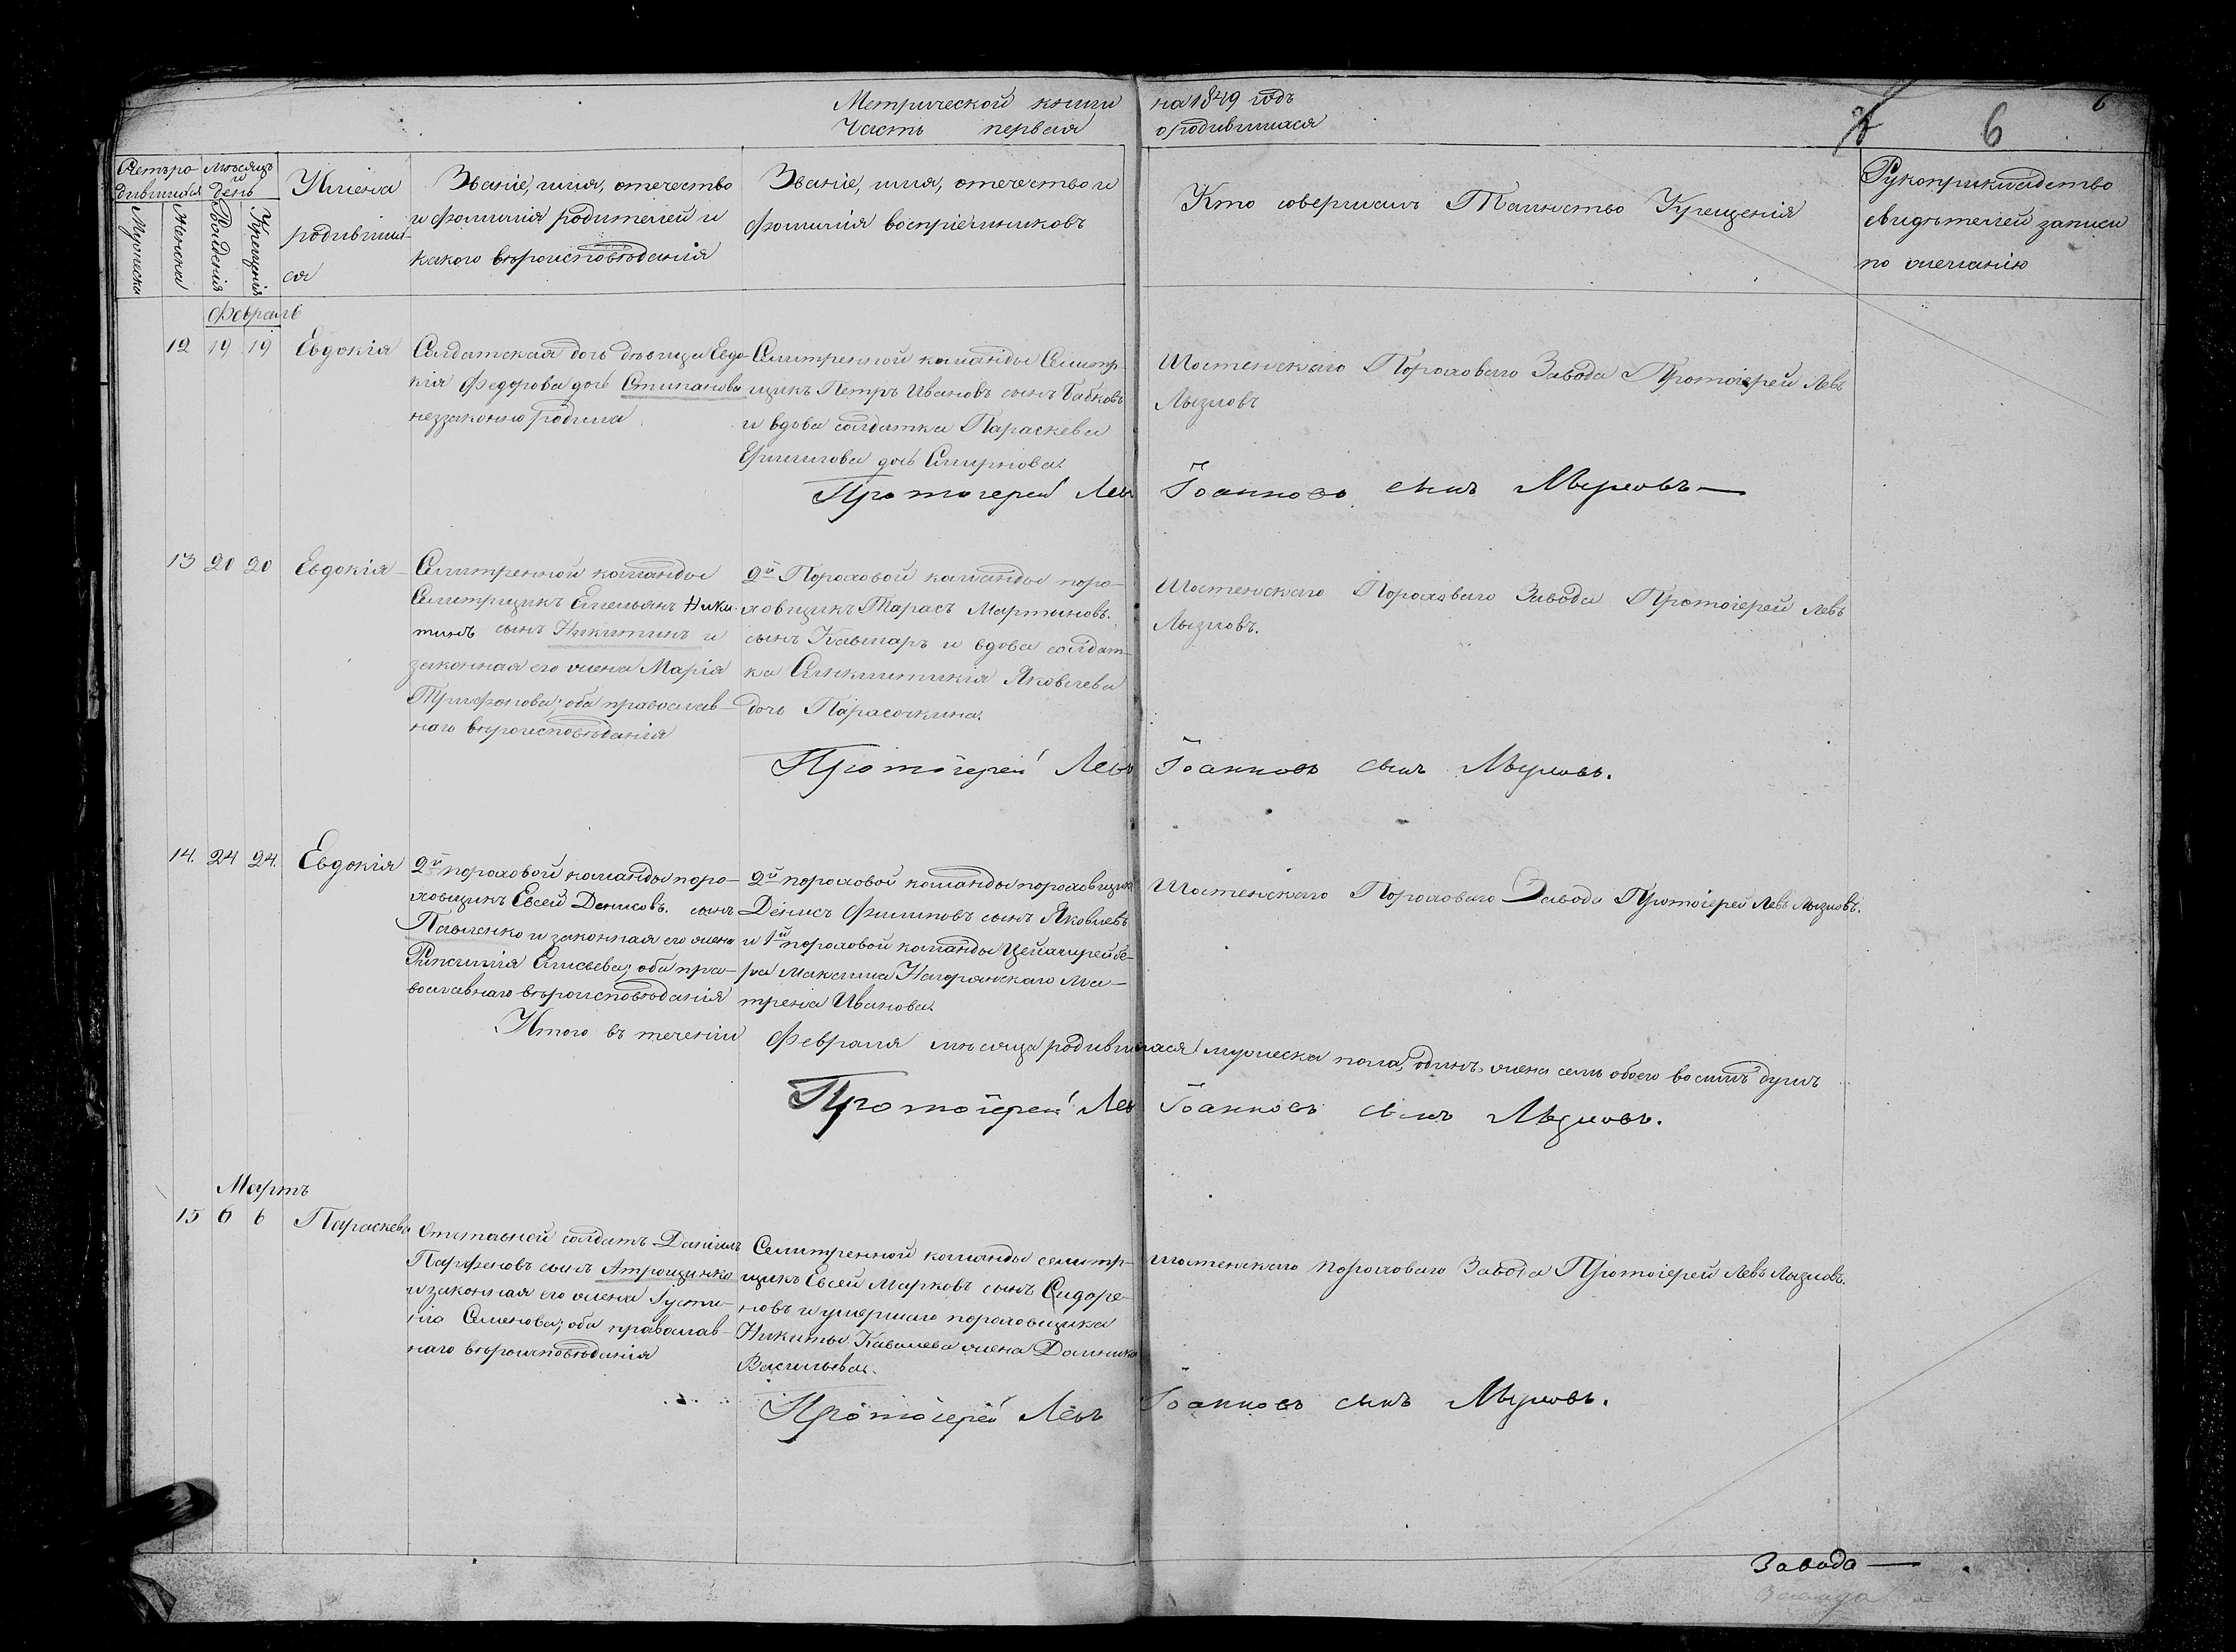 Метрической книги на 1849 годъ
Часть первая о родившихся
6
6
Счетъ родившихся
Мужеска
Женска
мѣсяцъ и день
Рожденія
Крещенія
Имена
родивших-
ся
Званіе, имя, отечество
и фамилія родителей и
какого вѣроисповѣданія
Званіе, имя, отечество и
фамилія воспріемниковъ
Кто совершалъ Таинство Крещенія
Рукоприкладство
свидѣтелей записи
по желанію
Февраль
12 19 19 Евдокія
Солдатская дочь дѣвица Евдо-
кія Федорова дочь Степанова
незаконно родила
Селитренной команды Селитр-
щикъ Петръ Ивановъ сынъ Бабковъ
и вдова солдатка Параскева
дочь Смирнова.
Шостенскаго Пороховаго Завода Протоіерей Левъ
Лызловъ
Протоіерей Левъ Іоанновъ сынъ Лызловъ
13 20 20 Евдокія
Селитренной команды
Селитрщикъ Емельянъ Ники-
тинъ сынъ Никитинъ и
законная его жена Марія
Трифонова; оба православ-
наго вѣроисповѣданія
2й Пороховой команды поро-
ховщикъ Тарасъ Мартиновъ.
сынъ и вдова солдат-
ка Синклитикія Яковлева
дочь Парасочкина.
Шостенскаго Пороховаго Завода Протоіерей Левъ
Лызловъ.
Протоіерей Левъ Іоанновъ сынъ Лызловъ.
14. 24 24. Евдокія
2й пороховой команды поро-
ховщикъ Евсей Денисовъ. сынъ
Павленко и законная его жена
Рипсимія Елисѣева; оба пра-
вославнаго вѣроисповѣданія
2й пороховой команды пороховщикъ
Денисъ Филиповъ сынъ Яковлевъ
и 1й пороховой команды Цейхшрейбе-
ра Максима Нагорянскаго Ма-
трена Иванова.
Шостенскаго Пороховаго Завода Протоіерей Левъ Лызловъ.
Итого въ теченіи Февраля мѣсяца родившихся мужеска пола, одинъ, жена семь обоего восимъ душъ
Протоіерей Левъ Іоанновъ сынъ Лызловъ.
Мартъ
15 6 6 Параскева
Отставной солдатъ Даніилъ
Парфеновъ сынъ Атрощенко
и законная его жена Іусти-
нія Семенова; оба православ-
наго вѣроисповѣданія
Селитренной команды селитр-
щикъ Евсей Марковъ сынъ Сидоре-
новъ и умершаго пороховщика
Никиты Ковалева жена Домника
Васильева.
Шостенскаго Пороховаго Завода Протоіерей Левъ Лызловъ.
Протоіерей Левъ Іоанновъ сынъ Лызловъ.
Завода
Завода